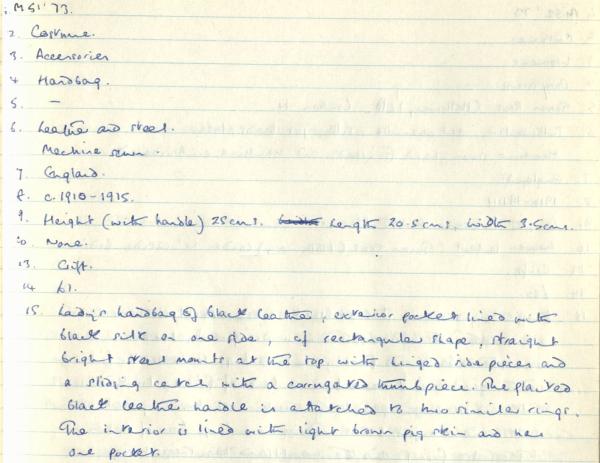 1. MSI '73.
2. Costume.
3. Accessories
4 Handbag.
5. —
6. Leather and steel.
Machine sewn.
7. England.
8. c. 1910-1915.
9. Height (with handle) 25cms. Length 20.5cms. Width 3.5cms.
10. None.
13. Gift.
14 £1.
15 Lady's handbag of black leather, exterior pocket lined with
black silk on one side, of rectangular shape, straight
bright steel mounts at the top with hinged side pieces and
a sliding catch with a corrugated thumbpiece. The plaited
black leather handle is attached to two similar rings.
The interior is lined with light brown pig skin and has
one pocket.